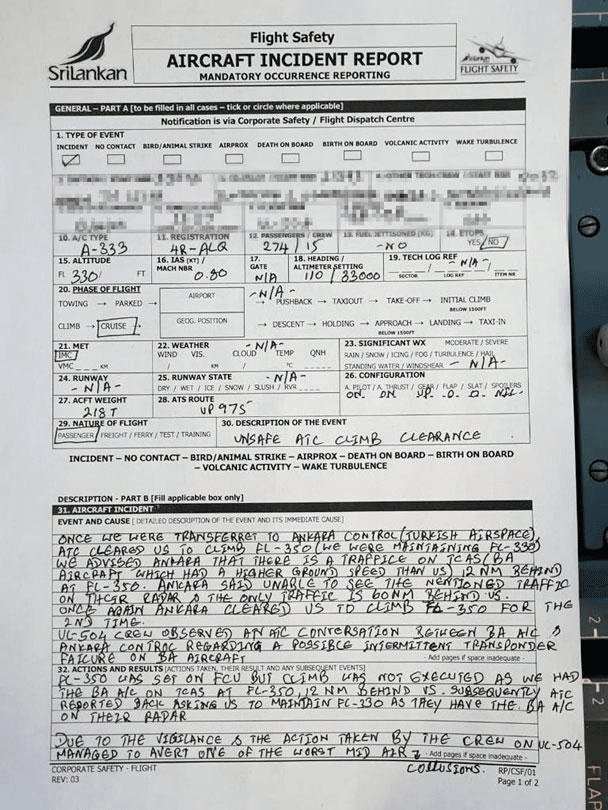 Flight Safety
AIRCRAFT INCIDENT REPORT
MANDATORY OCCURRENCE REPORTING
SriLankan
SriLankan
FLIGHT SAFETY
GENERAL – PART A [to be filled in all cases – tick or circle where applicable]
Notification is via Corporate Safety / Flight Dispatch Centre
1. TYPE OF EVENT
INCIDENT NO CONTACT BIRD/ANIMAL STRIKE AIRPROX DEATH ON BOARD BIRTH ON BOARD VOLCANIC ACTIVITY WAKE TURBULENCE
10. A/C TYPE 11. REGISTRATION 12. PASSENGERS / CREW 13. FUEL JETTISONED (KG) 14. ETOPS
A-333 4R-ALQ 274 / 15 -NO YES/NO
15. ALTITUDE 16. IAS (KT) / MACH NBR 17. GATE 18. HEADING / ALTIMETER SETTING 19. TECH LOG REF
FL 330/ FT 0.80 N/A 110 / 33000 -N/A-
SECTOR LOG REF ITEM NR.
20. PHASE OF FLIGHT AIRPORT -N/A-
TOWING → PARKED → → PUSHBACK → TAXIOUT → TAKE-OFF → INITIAL CLIMB
BELOW 1500FT
GEOG. POSITION
CLIMB → CRUISE → → DESCENT → HOLDING → APPROACH → LANDING → TAXI-IN
BELOW 1500FT
21. MET 22. WEATHER -N/A- 23. SIGNIFICANT WX MODERATE/ SEVERE
IMC WIND VIS. CLOUD TEMP QNH RAIN / SNOW / ICING / FOG / TURBULENCE / HAIL
VMC KM / KM / °C STANDING WATER / WINDSHEAR -N/A-
24. RUNWAY 25. RUNWAY STATE -N/A- 26. CONFIGURATION
-N/A- DRY / WET / ICE / SNOW / SLUSH / RVR A. PILOT / A. THRUST / GEAR / FLAP / SLAT / SPOILERS
ON ON UP 0 0 NIL
27. ACFT WEIGHT 28. ATS ROUTE
218 T UP975
29. NATURE OF FLIGHT 30. DESCRIPTION OF THE EVENT
PASSENGER / FREIGHT / FERRY / TEST / TRAINING UNSAFE ATC CLIMB CLEARANCE
INCIDENT – NO CONTACT – BIRD/ANIMAL STRIKE – AIRPROX – DEATH ON BOARD – BIRTH ON BOARD
– VOLCANIC ACTIVITY – WAKE TURBULENCE
DESCRIPTION - PART B [Fill applicable box only]
31. AIRCRAFT INCIDENT
EVENT AND CAUSE [ DETAILED DESCRIPTION OF THE EVENT AND ITS IMMEDIATE CAUSE]
ONCE WE WERE TRANSFERRET TO ANKARA CONTROL (TURKISH AIRSPACE),
ATC CLEARED US TO CLIMB FL-350 (WE WERE MAINTAINING FL-330)
WE ADVISED ANKARA THAT THERE IS A TRAFFICE ON TCAS (BA
AIRCRAFT WHICH HAD A HIGHER GROUND SPEED THAN US) 12 NM BEHIND
AT FL-350. ANKARA SAID UNABLE TO SEE THE MENTIONED TRAFFIC
ON THEIR RADAR & THE ONLY TRAFFIC IS 60NM BEHIND US.
ONCE AGAIN ANKARA CLEARED US TO CLIMB FL-350 FOR THE
2ND TIME.
UL-504 CREW OBSERVED AN ATC CONVERSATION BETWEEN BA A/C &
ANKARA CONTROL REGARDING A POSSIBLE INTERMITTENT TRANSPONDER
FAILURE ON BA AIRCRAFT
- Add pages if space inadequate -
32. ACTIONS AND RESULTS [ACTIONS TAKEN, THEIR RESULT AND ANY SUBSEQUENT EVENTS]
FL-350 WAS SET ON FCU BUT CLIMB WAS NOT EXECUTED AS WE HAD
THE BA A/C ON TCAS AT FL-350, 12 NM BEHIND US. SUBSEQUENTLY ATC
REPORTED BACK ASKING US TO MAINTAIN FL-330 AS THEY HAVE THE BA A/C
ON THEIR RADAR
DUE TO THE VIGILANCE & THE ACTION TAKEN BY THE CREW ON UL-504
MANAGED TO AVERT ONE OF THE WORST MID AIR
- Add pages if space inadequate -
COLLUSIONS.
CORPORATE SAFETY - FLIGHT RP/CSF/01
REV: 03 Page 1 of 2
2
2
FLAP